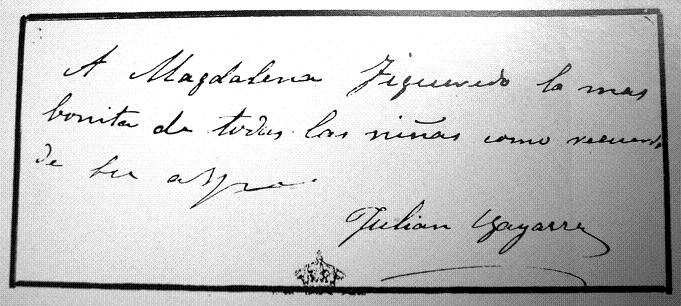 A Magdalena Figueredo la mas
bonita de todas las niñas como recuerdo
de su
Julian Gayarre